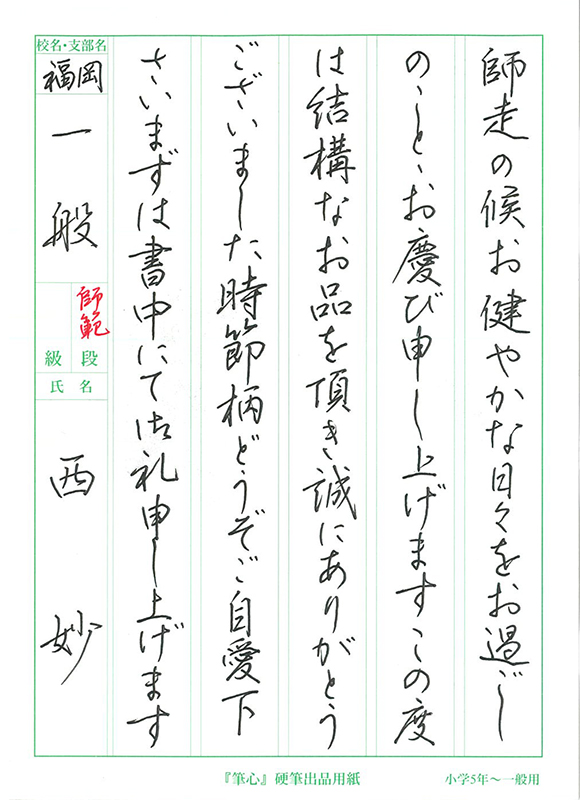 師走の候お健やかな日々をお過ごし
のこと、お慶び申し上げますこの度
は結構なお品を頂き誠にありがとう
ございました時節柄どうぞご自愛下
さいまずは書中にて御礼申し上げます
校名・支部名
福岡
一般
師範
段級
氏名
西 妙
『筆心』硬筆出品用紙
小学5年〜一般用